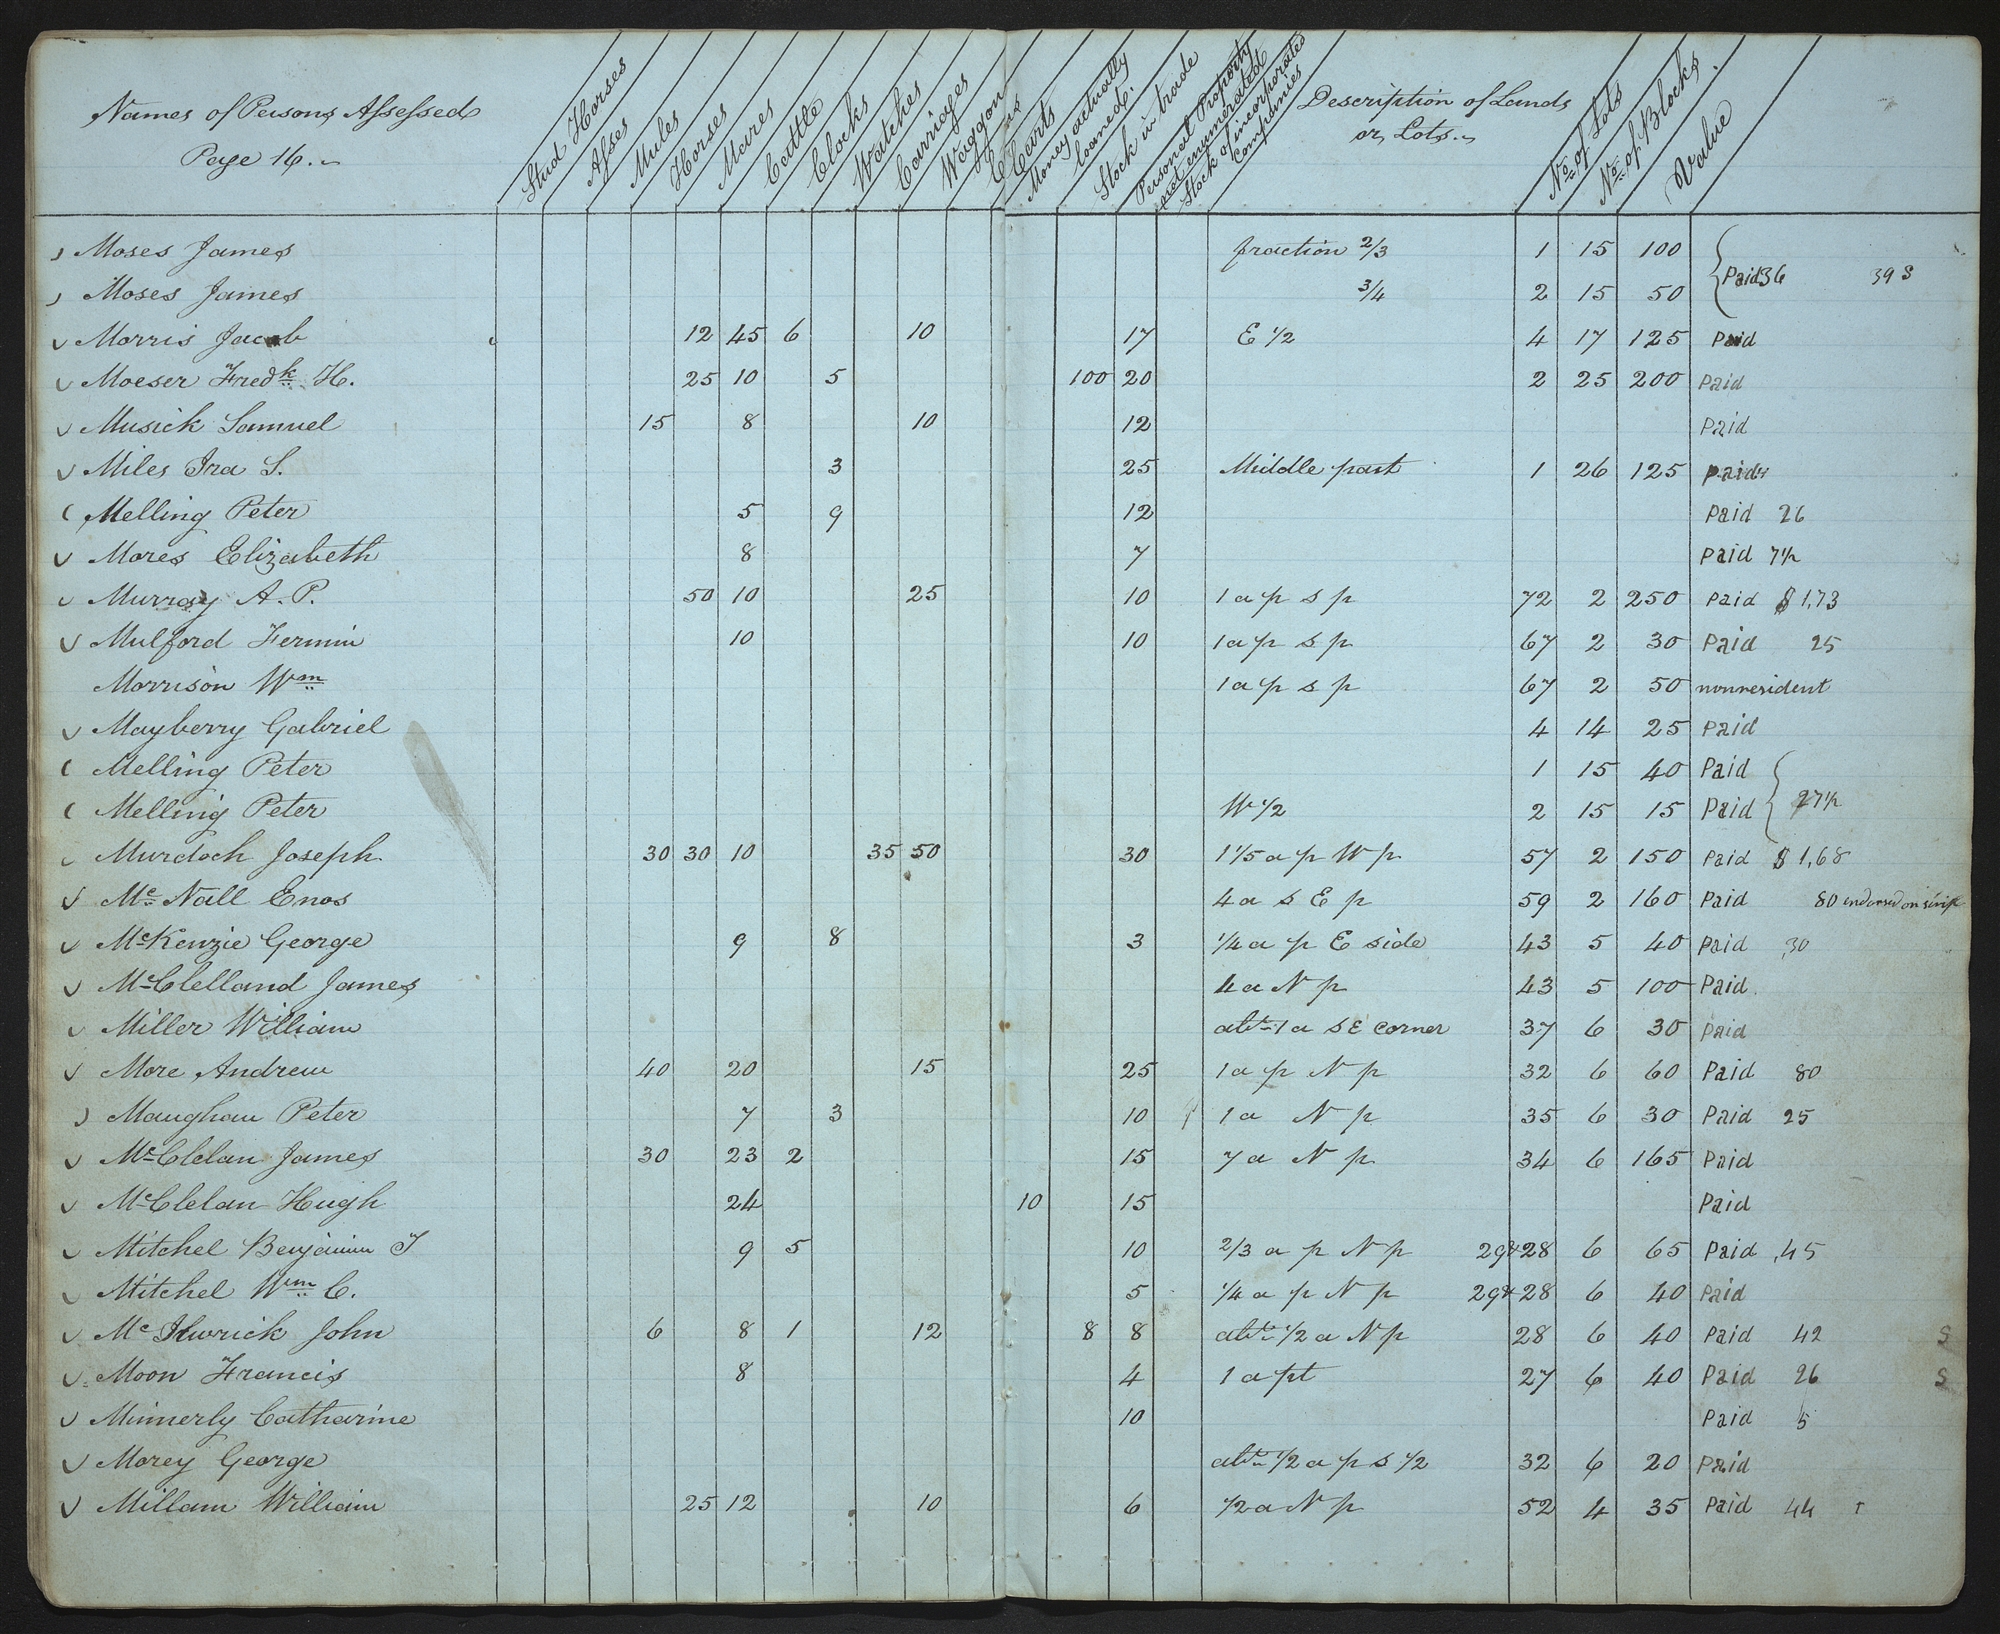 Names of Persons Assessed
Page 16.
Stud Horses
Asses
Mules
Horses
Mares
Cattle
Clocks
Watches
Carriages
Waggons
Carts
Money actually loaned.
Stock in trade
Personal Property not enumerated
Stock of incorporated companies
Description of Lands
or Lots.
No. of Lots
No. of Blocks
Value
Moses James fraction 2/3 1 15 100
Paid 36 39 S
Moses James 3/4 2 15 50
Morris Jacob 12 45 6 10 17 E 1/2 4 17 125 Paid
Moeser Fredk H. 25 10 5 100 20 2 25 200 Paid
Musick Samuel 15 8 10 12 Paid
Miles Ira S. 3 25 Middle part 1 26 125 paid
Melling Peter 5 9 12 Paid 26
Mores Elizabeth 8 7 Paid 7 1/2
Murray A. P. 50 10 25 10 1 a p s p 72 2 250 Paid $1,73
Mulford Fermin 10 10 1 a p s p 67 2 30 Paid 25
Morrison Wm 1 a p s p 67 2 50 nonresident
Mayberry Gabriel 4 14 25 Paid
Melling Peter 1 15 40 Paid
Melling Peter W 1/2 2 15 15 Paid 27 1/2
Murdoch Joseph 30 30 10 35 50 30 1 1/5 a p W p 57 2 150 Paid $1,68
Mc Nall Enos 4 a s E p 59 2 160 Paid 80 endorsed on scrip
McKenzie George 9 8 3 1/4 a p E side 43 5 40 Paid ,30
McClelland James 4 a N p 43 5 100 Paid.
Miller William abt 1 a S E corner 37 6 30 Paid
More Andrew 40 20 15 25 1 a p N p 32 6 60 Paid 80
Maughan Peter 7 3 10 1 a N p 35 6 30 Paid 25
McClelan James 30 23 2 15 7 a N p 34 6 165 Paid
McClelan Hugh 24 10 15 Paid
Mitchel Benjamin T 9 5 10 2/3 a p N p 29 & 28 6 65 Paid ,45
Mitchel Wm C. 5 1/4 a p N p 29 & 28 6 40 Paid
Mc Ilwrick John 6 8 1 12 8 8 abt 1/2 a N p 28 6 40 Paid 42 S
Moon Francis 8 4 1 a pt 27 6 40 Paid 26 S
Minnerly Catharine 10 Paid 5
Morey George abt 1/2 a p s 1/2 32 6 20 Paid
Millam William 25 12 10 6 1/2 a N p 52 4 35 Paid 44